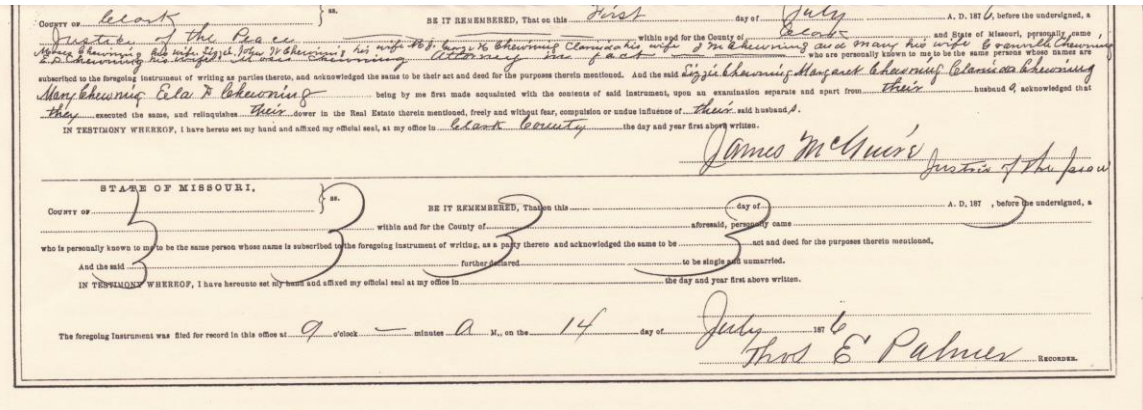 County of Clark } ss. BE IT REMEMBERED, That on this First day of July A. D. 1876, before the undersigned, a
Justice of the Peace within and for the County of Clark and State of Missouri, personally came
Moses Chewning his wife Lizzie, John W Chewning his wife M J. Chewning Clamida his wife J M Chewning and Mary his wife Chewning
E D Chewning his wife Moses Chewning Attorney in fact who are personally known to me to be the same persons whose names are
subscribed to the foregoing instrument of writing as parties thereto, and acknowledged the same to be their act and deed for the purposes therein mentioned. And the said Lizzie Chewning Margaret Chewning Clamida Chewning
Mary Chewning Ela D Chewning being by me first made acquainted with the contents of said instrument, upon an examination separate and apart from their husband s, acknowledged that
they executed the same, and relinquishes their dower in the Real Estate therein mentioned, freely and without fear, compulsion or undue influence of their said husband s.
IN TESTIMONY WHEREOF, I have hereto set my hand and affixed my official seal, at my office in Clark County the day and year first above written.
James McGuire
Justice of the peace
STATE OF MISSOURI, } ss.
County of BE IT REMEMBERED, That on this day of A. D. 187 , before the undersigned, a
within and for the County of aforesaid, personally came
who is personally known to me to be the same person whose name is subscribed to the foregoing instrument of writing, as a party thereto and acknowledged the same to be act and deed for the purposes therein mentioned.
And the said further declared to be single and unmarried.
IN TESTIMONY WHEREOF, I have hereunto set my hand and affixed my official seal at my office in the day and year first above written.
The foregoing Instrument was filed for record in this office at 9 o'clock — minutes A M., on the 14 day of July 1876
Thos E Palmer Recorder.